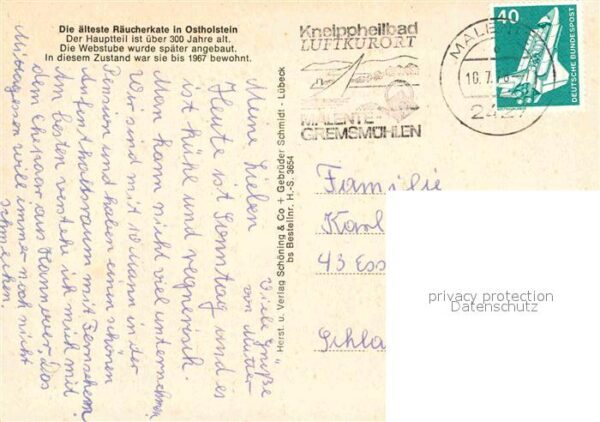 Die älteste Räucherkate in Ostholstein
Der Hauptteil ist über 300 Jahre alt.
Die Webstube wurde später angebaut.
In diesem Zustand war sie bis 1967 bewohnt.
Meine Lieben
Heute ist Sonntag und es
ist kühl und regnerisch.
Man kann nicht viel unternehmen
Wir sind mit 10 Mann in der
Pension und haben einen schönen
Aufenthaltsraum mit Fernsehern
Am besten verstehe ich mich mit
dem Ehepaar aus Hannover. Das
Mittagessen will immer noch nicht
schmecken.
Viele Grüße
von Mutter
Herst. u. Verlag Schöning & Co + Gebrüder Schmidt - Lübeck
bs Bestellnr. H.-S. 3654
Kneippheilbad
LUFTKURORT
MALENTE-
GREMSMÜHLEN
MALENTE
16.7.
2427
40
DEUTSCHE BUNDESPOST
Familie
Karl
43 Ess
Schla
privacy protection
Datenschutz